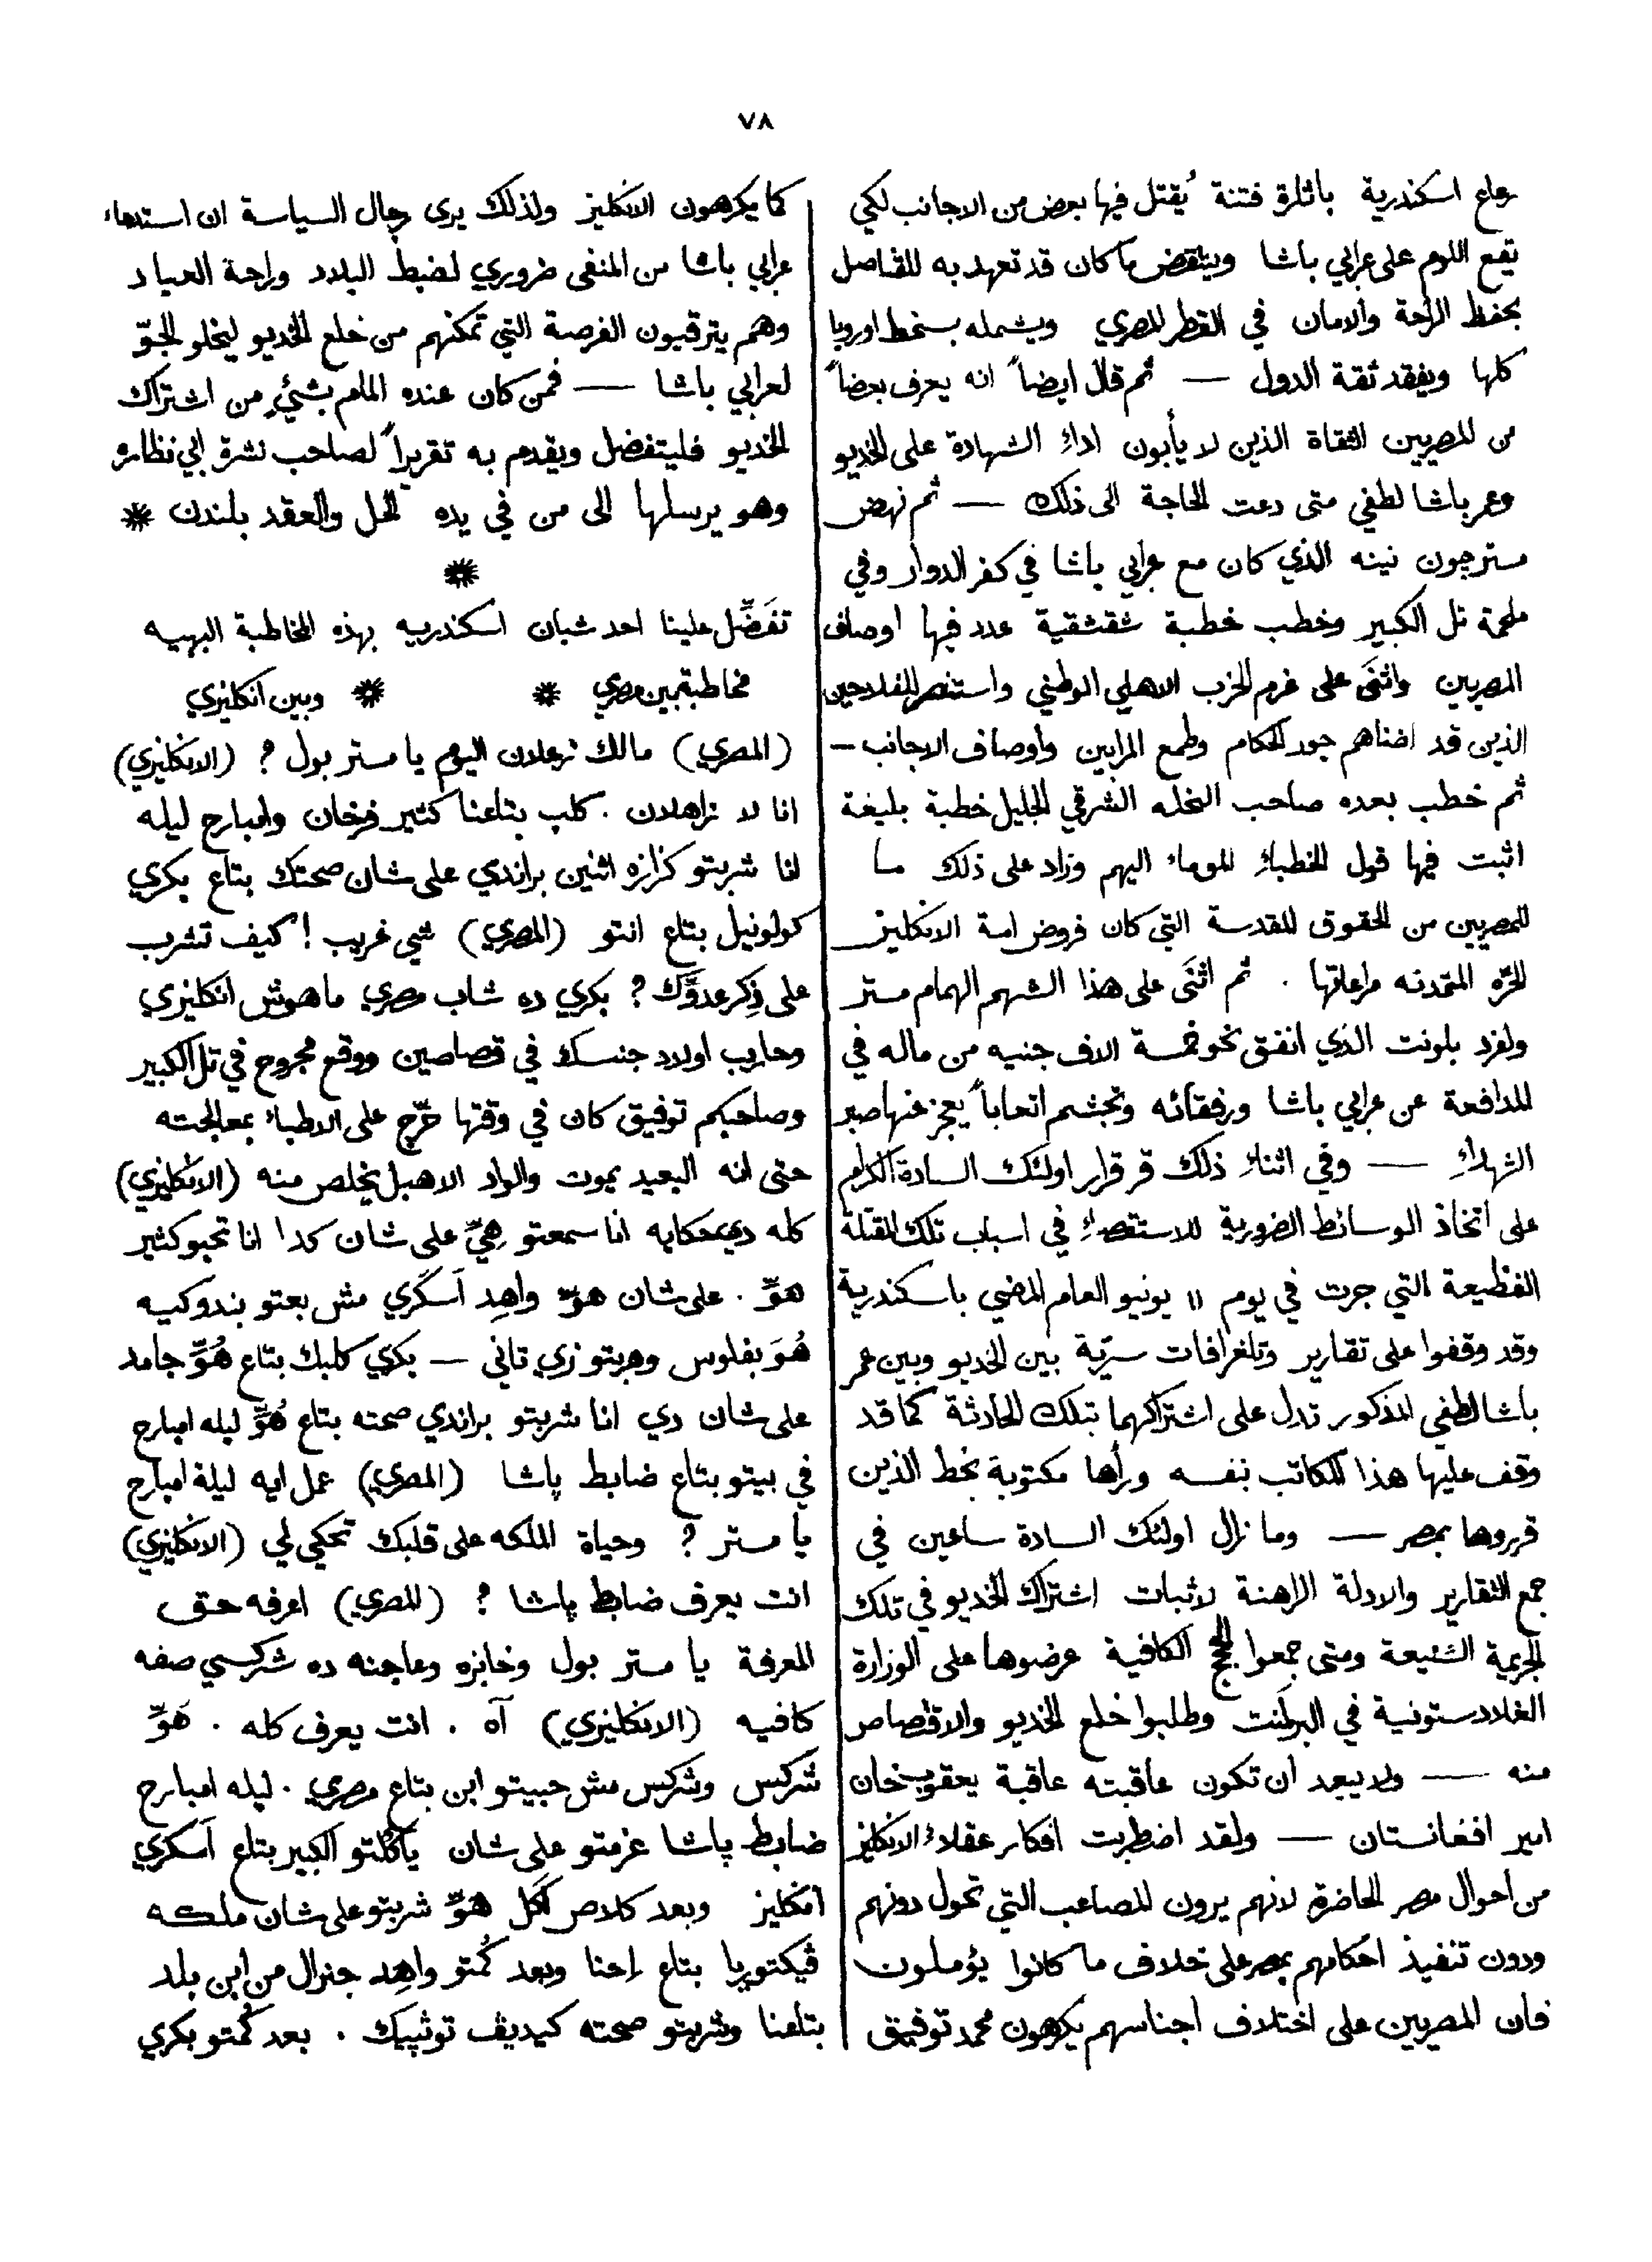 ٧٨
رعاع اسكندرية باثارة فتنة يُقتل فيها بعض من الاجانب لكي
يقع اللوم على عرابي باشا وينتقض ما كان قد تعهد به للقناصل
بحفظ الراحة والامان في القطر المصري ويشمله بسخط اوروبا
كلها ويفقد ثقة الدول — ثم قال ايضاً انه يعرف بعضاً
من المصريين الثقاة الذين لا يأبون اداء الشهادة على الخديو
وعمر باشا لطفي متى دعت الحاجة الى ذلك — ثم نهض
مستر جون نينه الذي كان مع عرابي باشا في كفر الدوار وفي
ملحمة تل الكبير وخطب خطبة شقشقية عدد فيها اوصاف
المصريين واثنَى على غرم الحزب الاهلي الوطني واستنصر للفلاحين
الذين قد اضناهم جور الحكام وطمع المرابين وأوصاف الاجانب —
ثم خطب بعده صاحب النحله الشرقي الجليل خطبة بليغة
اثبت فيها قول الخطباء الموماء اليهم وزاد على ذلك ما
للمصريين من الحقوق المقدسة التي كان فروض امة الانكليز
الحرّه المتمدنه مراعاتها . ثم اثنَى على هذا الشهم الهمام مستر
ولفرد بلونت الذي انفق نحو خمسة الاف جنيه من ماله في
المدافعة عن عرابي باشا ورفقائه وتجشم اتعاباً يعجز عنها صبر
الشهداء — وفي اثناء ذلك قر قرار اولئك السادة الكرام
على اتخاذ الوسائط الضرورية للاستقصاء في اسباب تلك المقتلة
الفظيعة التي جرت في يوم ١١ يونيو العام الماضي باسكندرية
وقد وقفوا على تقارير وتلغرافات سريّة بين الخديو وبين عمر
باشا لطفي المذكور تدل على اشتراكهما بتلك الحادثة كما قد
وقف عليها هذا الكاتب بنفسه ورأها مكتوبة بخط الذين
قرروها بمصر — وما زال اولئك السادة ساعين في
جمع التقارير والادلة الراهنة لاثبات اشتراك الخديو في تلك
الجريمة الشنيعة ومتى جمعوا الحجج الكافية عرضوها على الوزارة
الغلادستونية في البرلمَنت وطلبوا خلع الخديو والاقتصاص
منه — ولا يبعد ان تكون عاقبته عاقبة يعقوب خان
امير افغانستان — ولقد اضطربت افكار عقلاء الانكليز
من احوال مصر الحاضرة لانهم يرون المصاعب التي تحول دونهم
ودون تنفيذ احكامهم بمصر على خلاف ما كانوا يؤملون
فان المصريين على اختلاف اجناسهم يكرهون محمد توفيق
كما يكرهون الانكليز ولذلك يرى رجال السياسة ان استدعاء
عرابي باشا من المنفى ضروري لضبط البلاد وراحة العباد
وهم يترقبون الفرصة التي تمكنهم من خلع الخديو ليخلو الجوّ
لعرابي باشا — فمن كان عنده المام بشئٍ من اشتراك
الخديو فليتفضل ويقدم به تقريراً لصاحب نشرة ابي نظاره
وهو يرسلها الى من في يده الحل والعقد بلندن *
*
تفَضَّل علينا احد شبان اسكندريه بهذه المخاطبة البهيه
مخاطبة بين مصري * * وبين انكليزي
(المصري) مالك زعلان اليوم يا مستر بول ؟ (الانكليزي)
انا لا زاهلان . كلب بتاعنا كتير فرخان وامبارح ليله
انا شربتو كزازه اثنين براندي على شان صحتك بتاع بكري
كولونيل بتاع انتو (المصري) شي غريب ! كيف تشرب
على ذِكر عدوَّك ؟ بكري ده شاب مصري ماهوش انكليزي
وحارب اولاد جنسك في قصاصين ووقع مجروح في تل الكبير
وصاحبكم توفيق كان في وقتها حَرّج على الاطباء بمعالجته
حتى انه البعيد يموت والواد الاهبل يخلص منه (الانكليزي)
كله دي حكايه انا سمعتو هِيَّ على شان كدا انا تحبو كثير
هوَّ . على شان هوَّ واهِد آسكَري مش بعتو بندوكيه
هُوَ بفلوس وهربتو زي تاني — بكري كلبك بتاع هُوَّ جامد
على شان دي انا شربتو براندي صحته بتاع هُوَّ ليله امبارح
في بيتو بتاع ضابط پاشا (المصري) عمل ايه ليلة امبارح
يا مستر ؟ وحياة الملكه على قلبك تحكي لي (الانكليزي)
انت يعرف ضابط پاشا ؟ (المصري) اعرفه حق
المعرفة يا مستر بول وخابزه وعاجنه ده شركسي صفه
كافيه (الانكليزي) آه . انت يعرف كله . هَوَّ
شركس وشركس مش حبيتو ابن بتاع مصري . ليله امبارح
ضابط پاشا عزمتو على شان يأكُلتو الكبير بتاع آسكري
انكليز وبعد كلاص اَكل هَوَّ شربتو على شان ملكه
ڤيكتوريا بتاع اِحنا وبعد كُمتو واهِد جنرال من ابن بلد
بتاعنا وشربتو صحته كيديڤ توڤيك . بعد كُمتو بكري